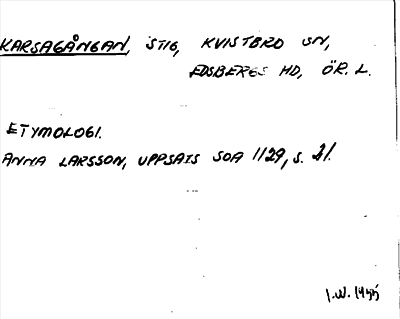 KARSAGÅNGAN, STIG, KVISTBRO SN,
EDSBERGS HD, ÖR. L.
ETYMOLOGI.
ANNA LARSSON, UPPSATS SOA 1129, S. 21.
I.W. 1955